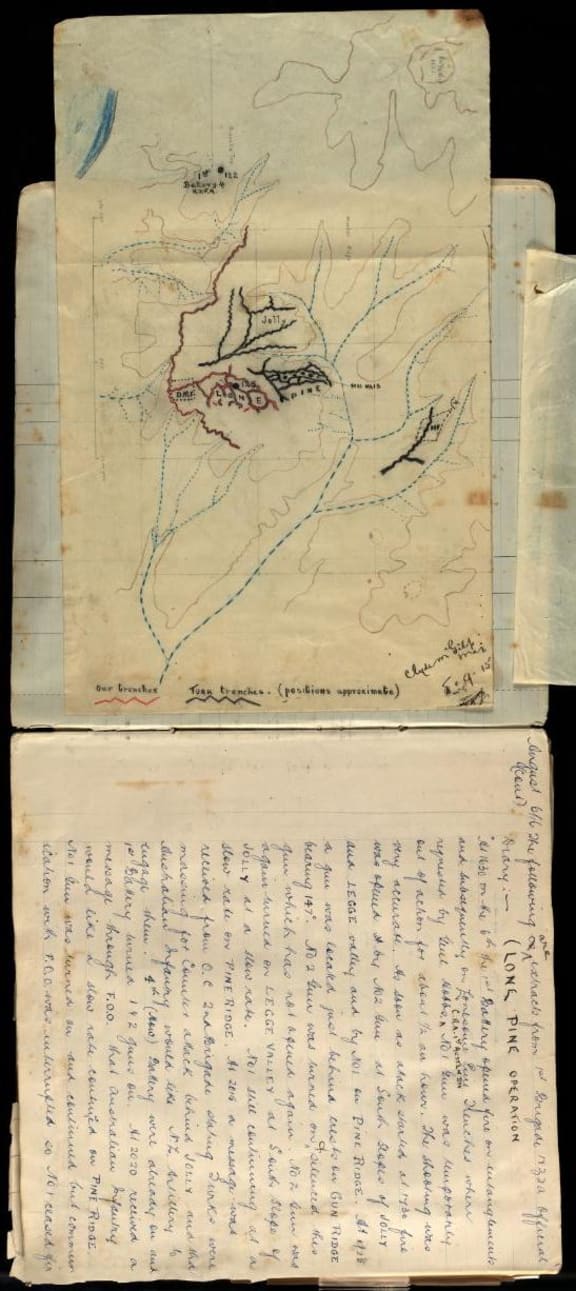 1st
Battery 4
122
Jolly
LONE
PINE
Our trenches
Turk trenches. (positions approximate)
August 6th The following are extracts from 1st Brigade NZFA Official
(Cont)
Diary :- (LONE PINE OPERATION
"At 1630 on the 6th the 1st Battery opened fire on entanglements
and subsequently on Lonesome Pine Trenches where
requested by Genl Hobbs. No 1 Gun was temporarily
out of action for about ½ an hour. The shooting was
very accurate. As soon as attack started at 1730 fire
was opened by No 2 Gun at South Slopes of JOLLY
and LEGGE valley and by No 1 on PINE RIDGE. At 1918
a gun was located just behind crests on GUN RIDGE
bearing 147° No 2 Gun was turned on & silenced this
gun which has not opened again. No 2 Gun was
again turned on LEGGE VALLEY at South Slope of
JOLLY at a slow rate. No 1 still continuing at a
slow rate on PINE RIDGE. At 2015 a message was
received from O.C. 2nd Brigade stating Turks were
massing for Counter attack behind JOLLY and that
Australian Infantry would like N.Z. Artillery to
engage them. 4th (How) Battery were already on and
1st Battery turned 1 & 2 guns on. At 2020 received a
message through F.O.O. that Australian Infantry
would like a slow rate continued on PINE RIDGE.
No 1 Gun was turned on and continued but commun
ication with F.O.O. was interrupted so No 1 ceased fire